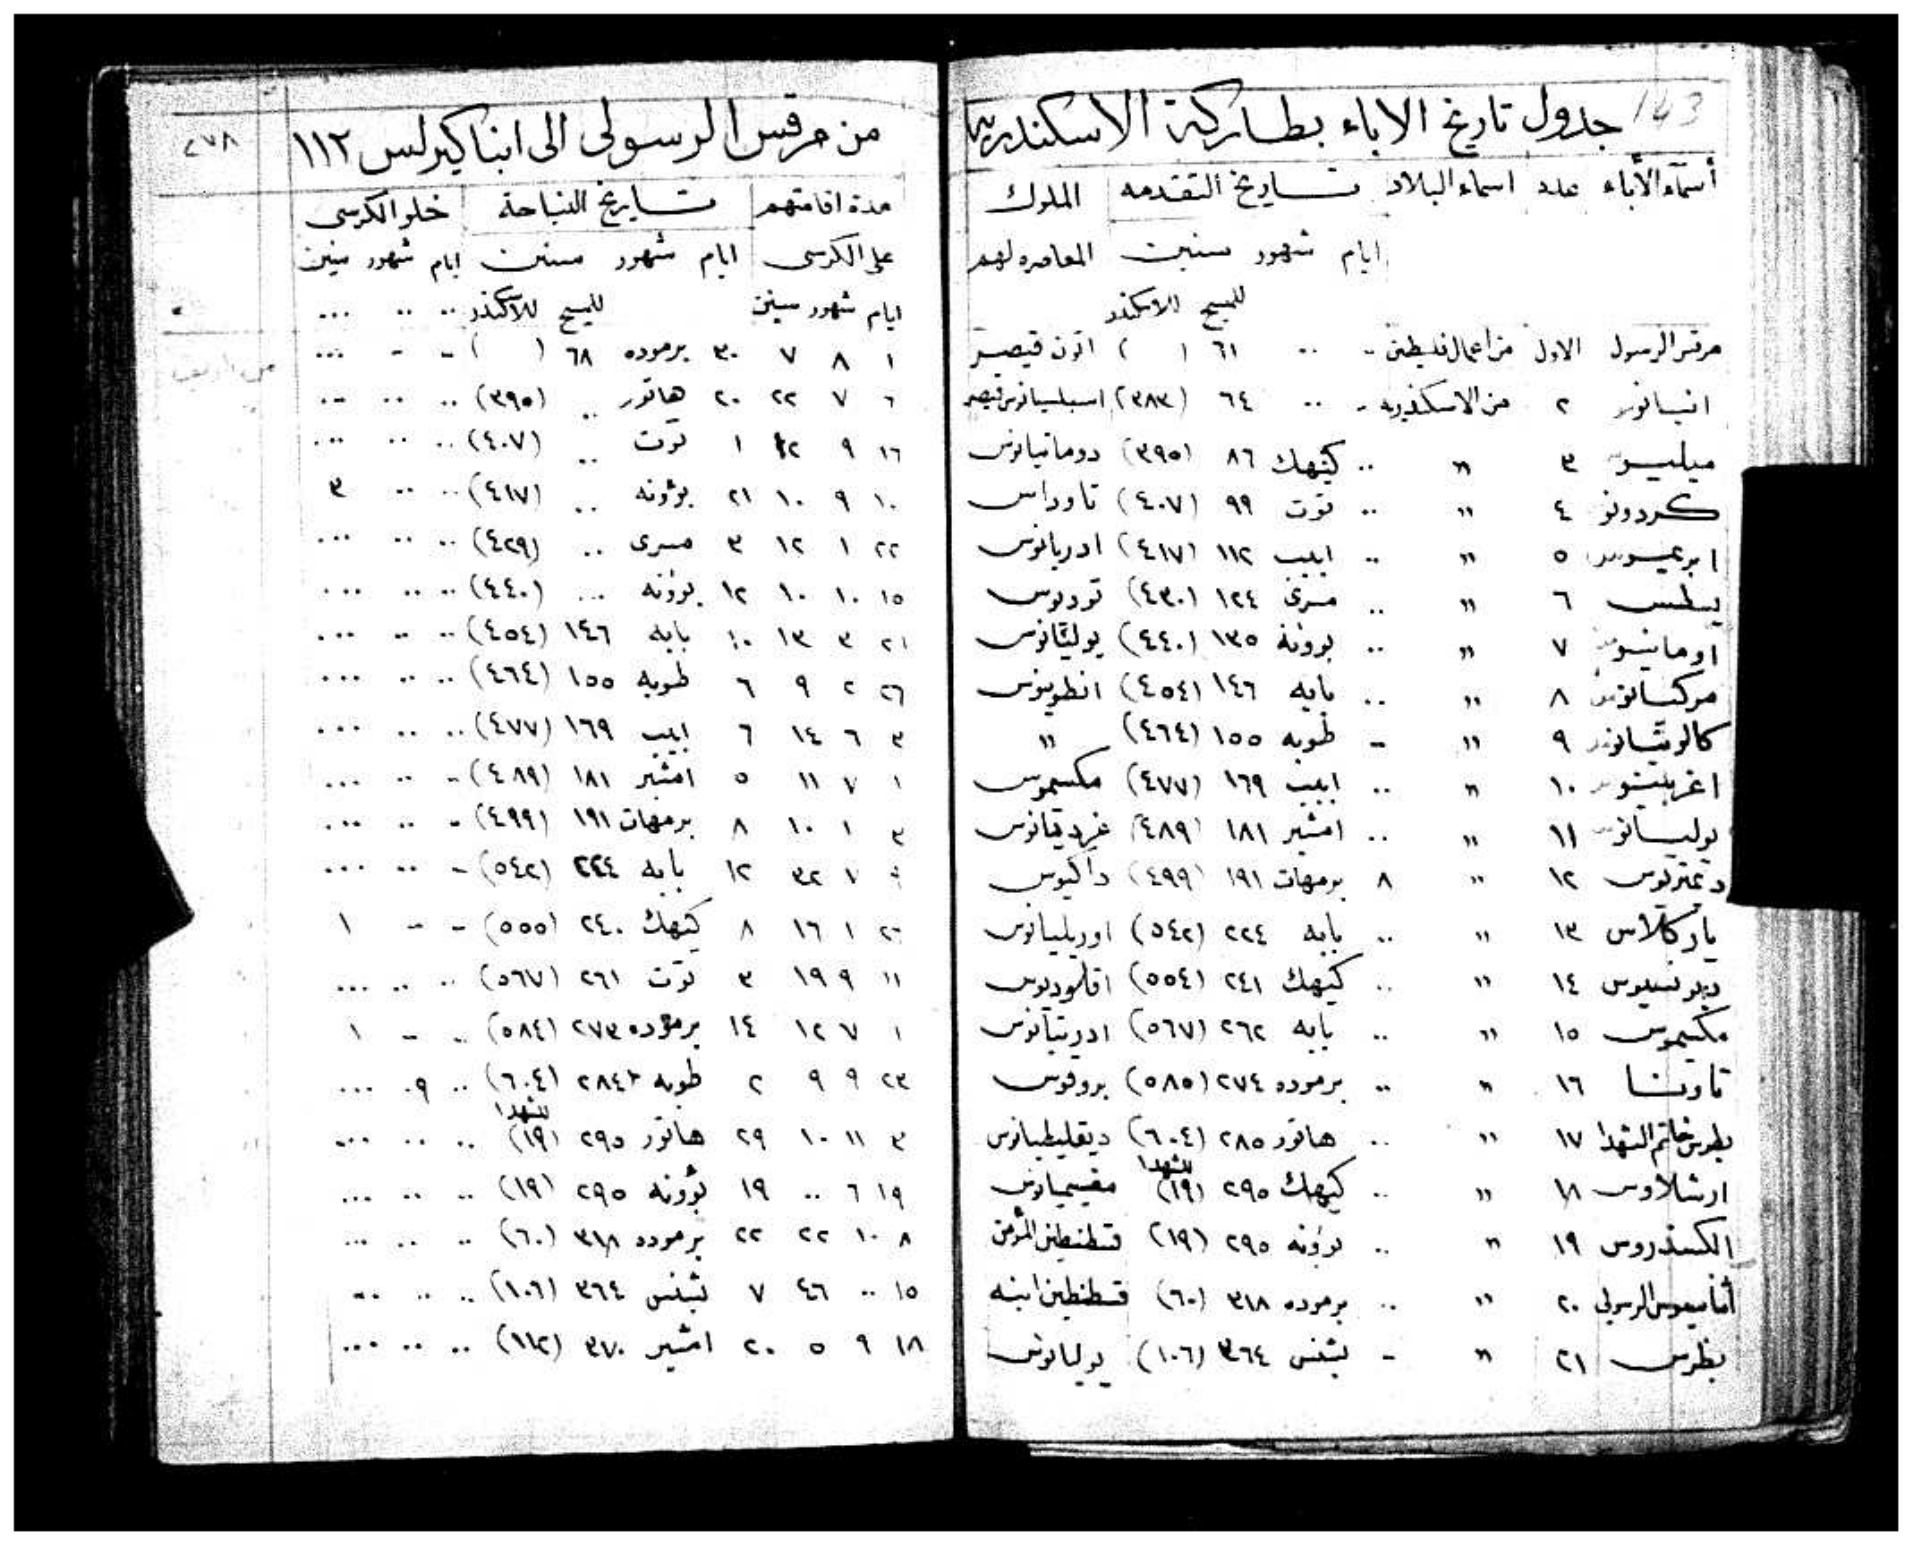 143
جدول تاريخ الاباء بطاركة الاسكندرية
أسماء الأباء عدد اسماء البلاد تاريخ التقدمه الملوك
ايام شهور سنين المعاصره لهم
للمسيح للاسكندر
مرقس الرسول الاول من اعمال فلسطين .. .. ٦١ ( ) قيصر
انيانوس ٢ من الاسكندريه .. .. ٦٤ (٣٨٣) اسبسيانوس قيصر
ميليوس ٣ " .. كيهك ٨٦ (٣٩٥) دوماتيانوس
كردونو ٤ " .. توت ٩٩ (٤٠٧) تاوداس
ابريموس ٥ " .. ابيب ١١٢ (٤١٧) ادريانوس
يسطس ٦ " .. مسرى ١٢٤ (٤٣٠) توديوس
اومانيوس ٧ " .. بوونة ١٣٥ (٤٤٠) يوليانوس
مركيانوس ٨ " .. بابه ١٤٦ (٤٥٤) انطونيوس
كالوتيانوس ٩ " - طوبه ١٥٥ (٤٦٤) "
اغربينوس ١٠ " .. ابيب ١٦٩ (٤٧٧) مكسيموس
يوليانوس ١١ " .. امشير ١٨١ (٤٨٩) غرديانوس
ديمتريوس ١٢ " ٨ برمهات ١٩١ (٤٩٩) داكيوس
ياركلاس ١٣ " .. بابه ٢٢٤ (٥٤٢) اوريليانوس
ديونسيوس ١٤ " .. كيهك ٢٤١ (٥٥٤) اقلوديوس
مكسيموس ١٥ " .. بابه ٢٦٢ (٥٦٧) ادريتيانوس
تاونا ١٦ " .. برموده ٢٧٤ (٥٨٥) بروفوس
بطرس خاتم الشهدا ١٧ " .. هاتور ٢٨٥ (٦٠٤) ديقليطيانوس
ارشلاوس ١٨ " .. كيهك ٢٩٥ (١٩) للشهدا مقسيميانوس
الكسندروس ١٩ " .. بوونه ٢٩٥ (١٩) قسطنطين المؤمن
أثناسيوس الرسولى ٢٠ " .. برموده ٣١٨ (٦٠) قسطنطين ابنه
بطرس ٢١ " - بشنس ٣٦٤ (١٠٦) يوليانوس
٢٧٨
من مرقس الرسولى الى انبا كيرلس ١١٢
مدة اقامتهم تاريخ النياحة خلو الكرسى
على الكرسى ايام شهور سنين ايام شهور سنين
ايام شهور سنين للمسيح للاسكندر .. .. ...
١ ٨ ٧ ٣٠ برموده ٦٨ ( ) - - ...
٦ ٧ ٢٢ ٢٠ هاتور .. (٣٩٥) .. .. ...
١٦ ٩ ١٢ ١ توت .. (٤٠٧) .. .. ...
١٠ ٩ ١٠ ٢١ بؤونه .. (٤١٧) .. .. ٣
٢٢ ١ ١٢ ٣ مسرى .. (٤٢٩) .. .. ...
١٥ ١٠ ١٠ ١٢ بؤونه ... (٤٤٠) .. .. ...
٢١ ٣ ١٣ ١٠ بابه ١٤٦ (٤٥٤) .. .. ...
٢٦ ٢ ٩ ٦ طوبه ١٥٥ (٤٦٤) .. .. ...
٣ ٦ ١٤ ٦ ابيب ١٦٩ (٤٧٧) .. .. ...
١ ٧ ١١ ٥ امشير ١٨١ (٤٨٩) - .. ...
٣ ١ ١٠ ٨ برمهات ١٩١ (٤٩٩) - .. ...
٧ ٣٢ ١٢ بابه ٢٢٤ (٥٤٢) - .. ...
٢٦ ١ ١٦ ٨ كيهك ٢٤٠ (٥٥٥) - - ١
١١ ٩ ١٩ ٣ توت ٢٦١ (٥٦٧) .. .. ...
١ ٧ ١٢ ١٤ برموده ٢٧٣ (٥٨٤) .. - ١
٢٣ ٩ ٩ ٢ طوبه ٢٨٤ (٦٠٤) .. ٩ ...
٣ ١١ ١٠ ٢٩ هاتور ٢٩٥ (١٩) للشهدا .. .. ...
١٩ ٦ .. ١٩ بؤونه ٢٩٥ (١٩) .. .. ...
٨ ١٠ ٢٢ ٢٢ برموده ٣١٨ (٦٠) .. .. ...
١٥ .. ٤٦ ٧ بشنس ٣٦٤ (١٠٦) .. .. ...
١٨ ٩ ٥ ٢٠ امشير ٣٧٠ (١١٢) .. .. ...